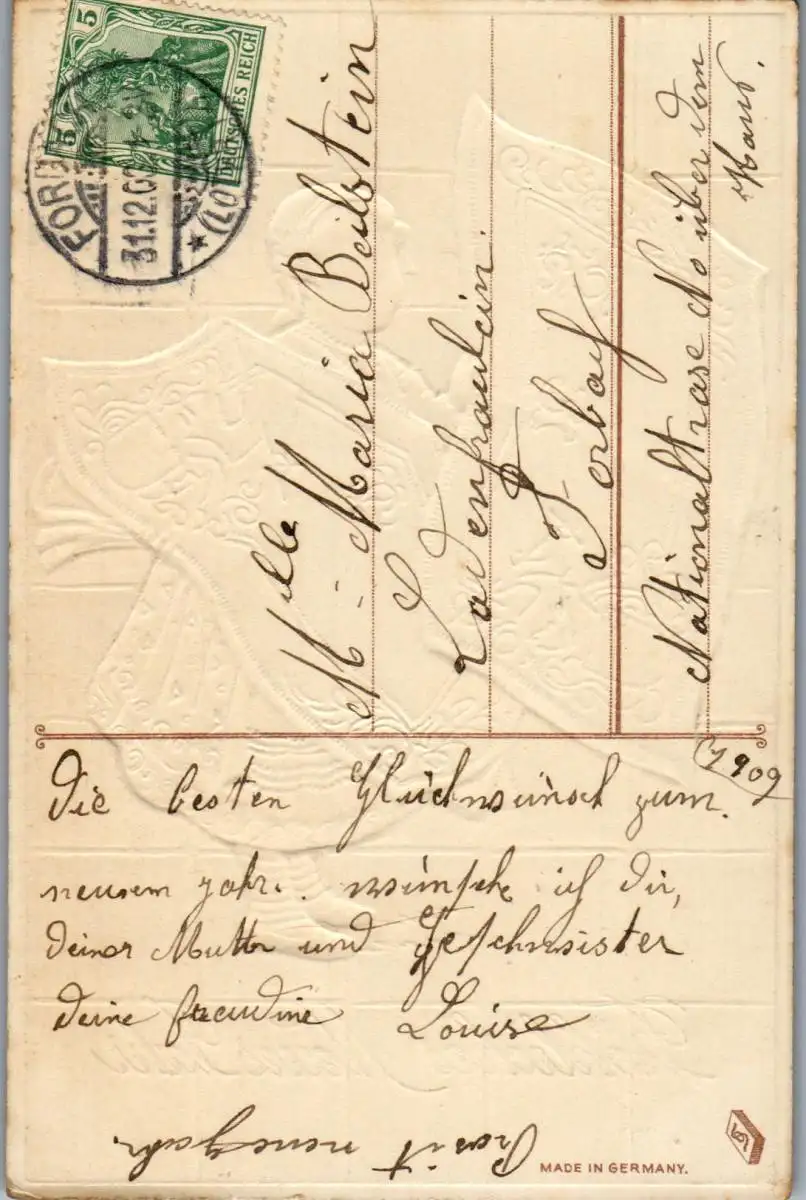 5
5
DEUTSCHES REICH
31.12.0
Mlle Maria Beilstein
Ladenfraulein
Forbach
Nationalstrase No über dem
Haus.
1909
Die besten Glückwünsch zum
neusem jahr. wünsche ich dir,
deiner Mutter und Geschwister
deine freundine Louise
Prosit neuejahr.
MADE IN GERMANY.